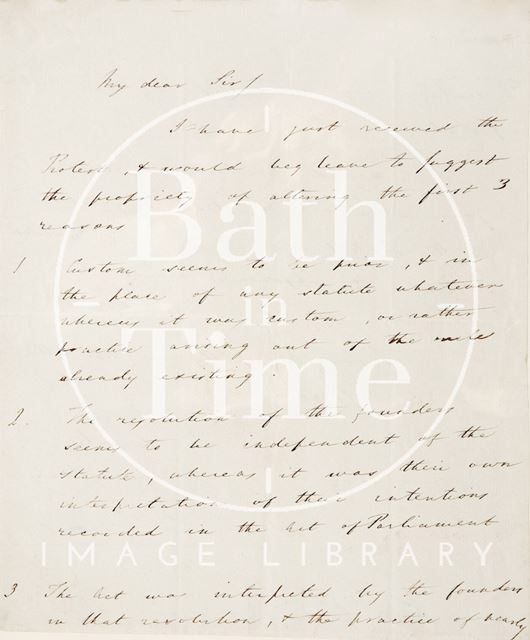 My dear Sir/
I have just received the
Protest, & would beg leave to suggest
the propriety of altering the first 3
reasons
1 Custom seems to be prior, & in
the place of any statute whatever
whereas it was custom, or rather
practice arising out of the rules
already existing.
2. The resolution of the founders
seems to be independent of the
Statute, whereas it was their own
interpretation of their intentions
recorded in the Act of Parliament
3 The Act was interpreted by the founders
in that resolution, & the practice of nearly
Bath
in
Time
IMAGE LIBRARY